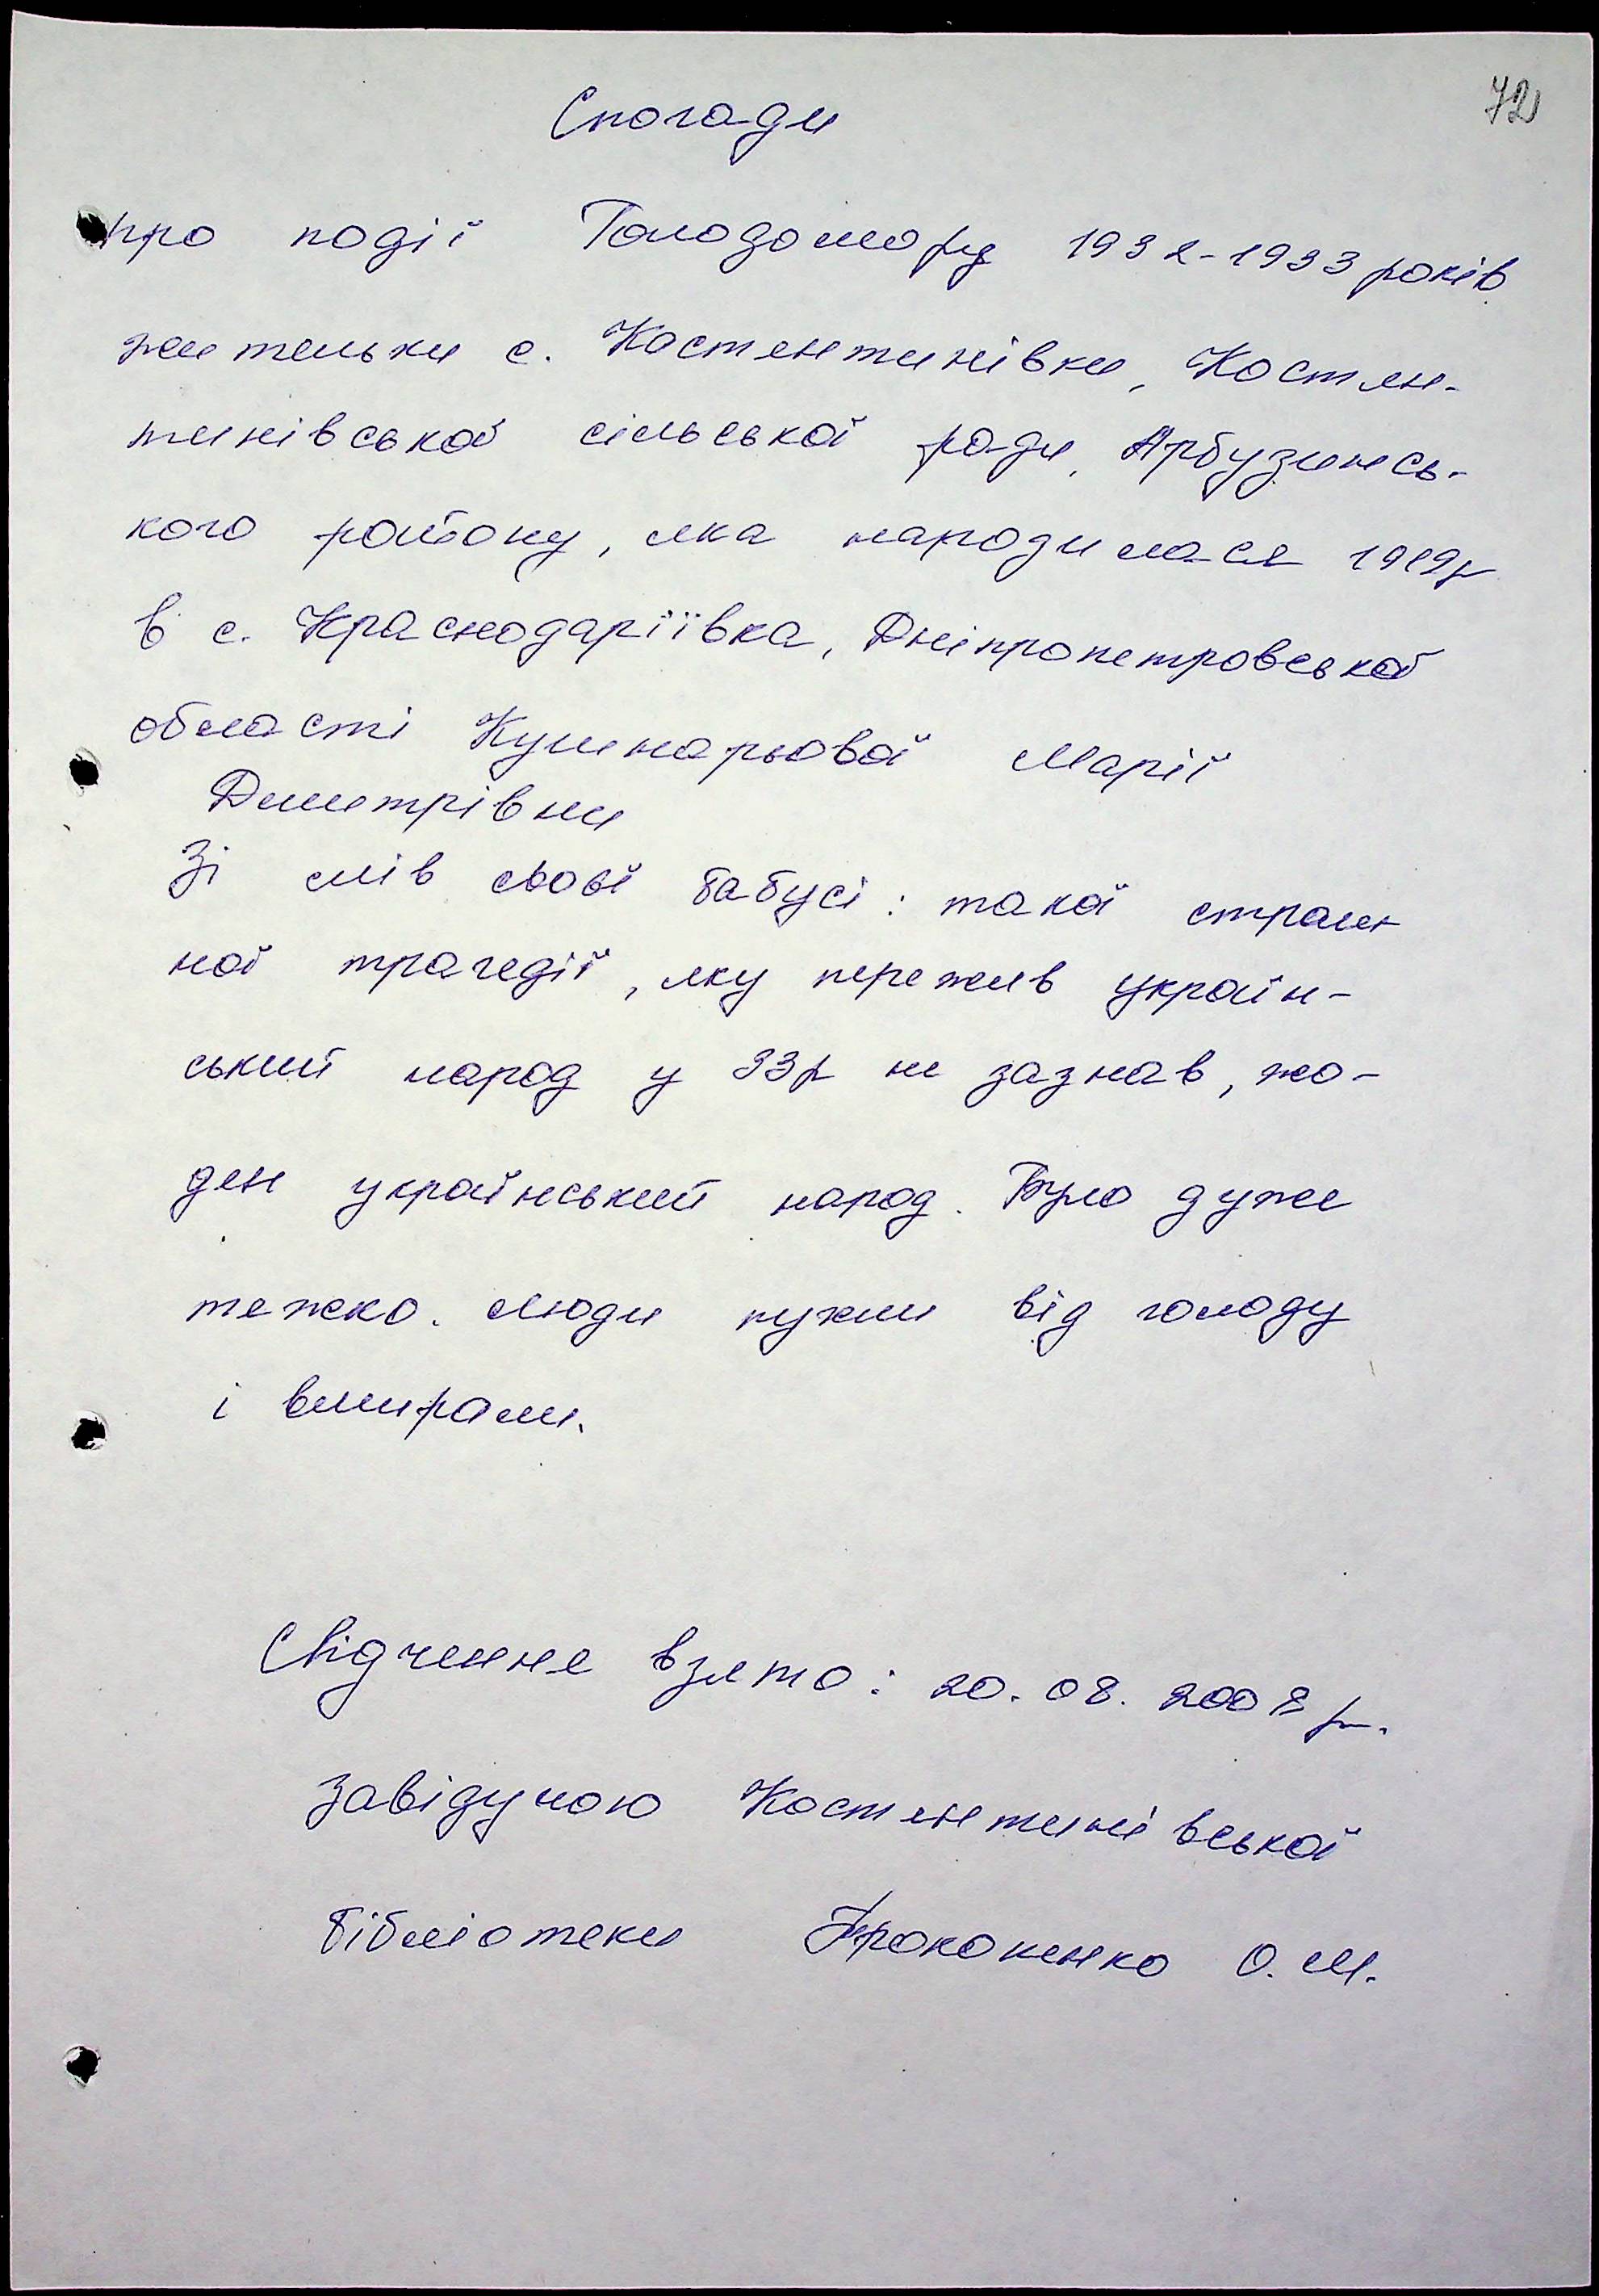 72
Спогади
про події Голодомору 1932-1933 років
жительки с. Костянтинівки, Костян-
тинівської сільської ради, Арбузинсь-
кого району, яка народилася 1919р
в с. Краснодаріївка, Дніпропетровської
області Кушнарьової Марії
Дмитрівни
Зі слів своєї бабусі: такої страш
ної трагедії, яку пережив україн-
ський народ у 33р не зазнав, жо-
ден український народ. Було дуже
тяжко. Люди пухли від голоду
і вмирали.
Свідчення взято: 20.08.2008 р.
Завідуючою Костянтинівської
бібліотеки Прокопенко О.М.